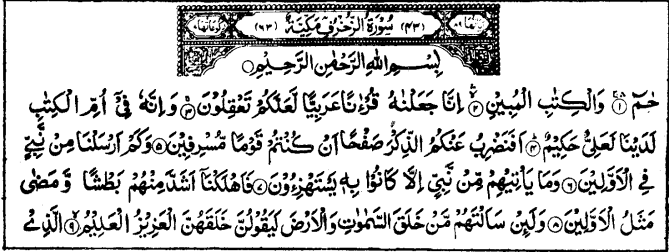 (٤٣) سُوْرَةُ الزُّخْرُفِ مَكِّيَّةٌ (٦٣)
بِسْمِ اللهِ الرَّحْمٰنِ الرَّحِيْمِ
حٰمٓ ۝١ وَالْكِتٰبِ الْمُبِيْنِ ۝٢ اِنَّا جَعَلْنٰهُ قُرْءٰنًا عَرَبِيًّا لَّعَلَّكُمْ تَعْقِلُوْنَ ۝٣ وَاِنَّهٗ فِيْٓ اُمِّ الْكِتٰبِ
لَدَيْنَا لَعَلِيٌّ حَكِيْمٌ ۝٤ اَفَنَضْرِبُ عَنْكُمُ الذِّكْرَ صَفْحًا اَنْ كُنْتُمْ قَوْمًا مُّسْرِفِيْنَ ۝٥ وَكَمْ اَرْسَلْنَا مِنْ نَّبِيٍّ
فِي الْاَوَّلِيْنَ ۝٦ وَمَا يَاْتِيْهِمْ مِّنْ نَّبِيٍّ اِلَّا كَانُوْا بِهٖ يَسْتَهْزِءُوْنَ ۝٧ فَاَهْلَكْنَآ اَشَدَّ مِنْهُمْ بَطْشًا وَّمَضٰى
مَثَلُ الْاَوَّلِيْنَ ۝٨ وَلَئِنْ سَاَلْتَهُمْ مَّنْ خَلَقَ السَّمٰوٰتِ وَالْاَرْضَ لَيَقُوْلُنَّ خَلَقَهُنَّ الْعَزِيْزُ الْعَلِيْمُ ۝٩ الَّذِيْ